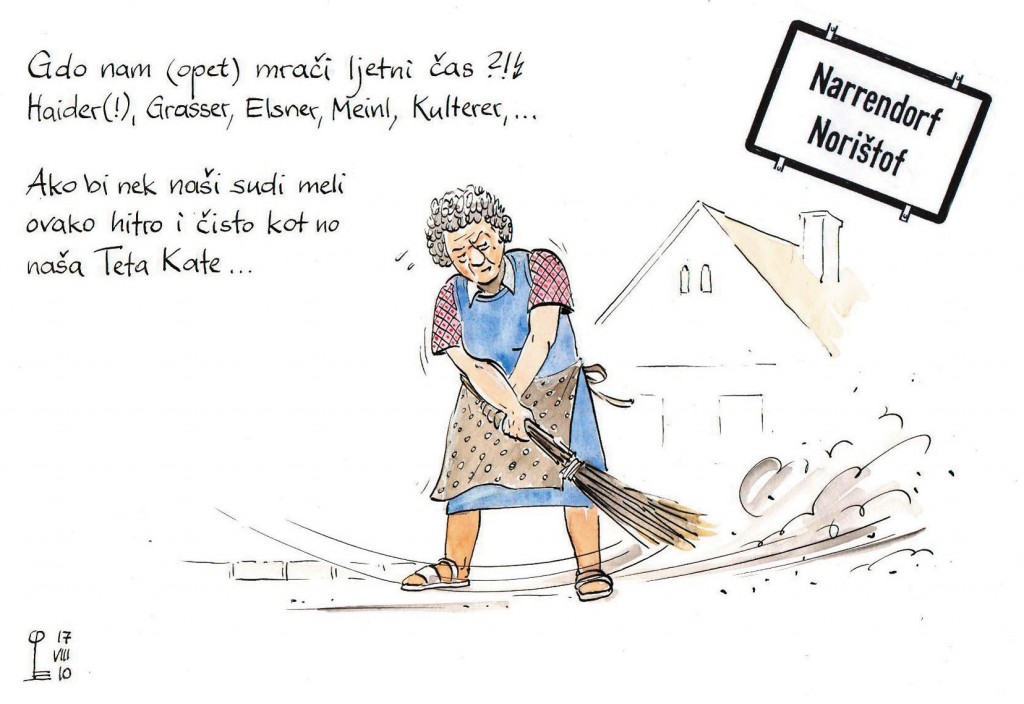 Gdo nam (opet) mrači ljetni čas ?!
Haider(!), Grasser, Elsner, Meinl, Kulterer, ...
Ako bi nek naši sudi meli
ovako hitro i čisto kot no
naša Teta Kate ...
Narrendorf
Norištof
17
VIII
10